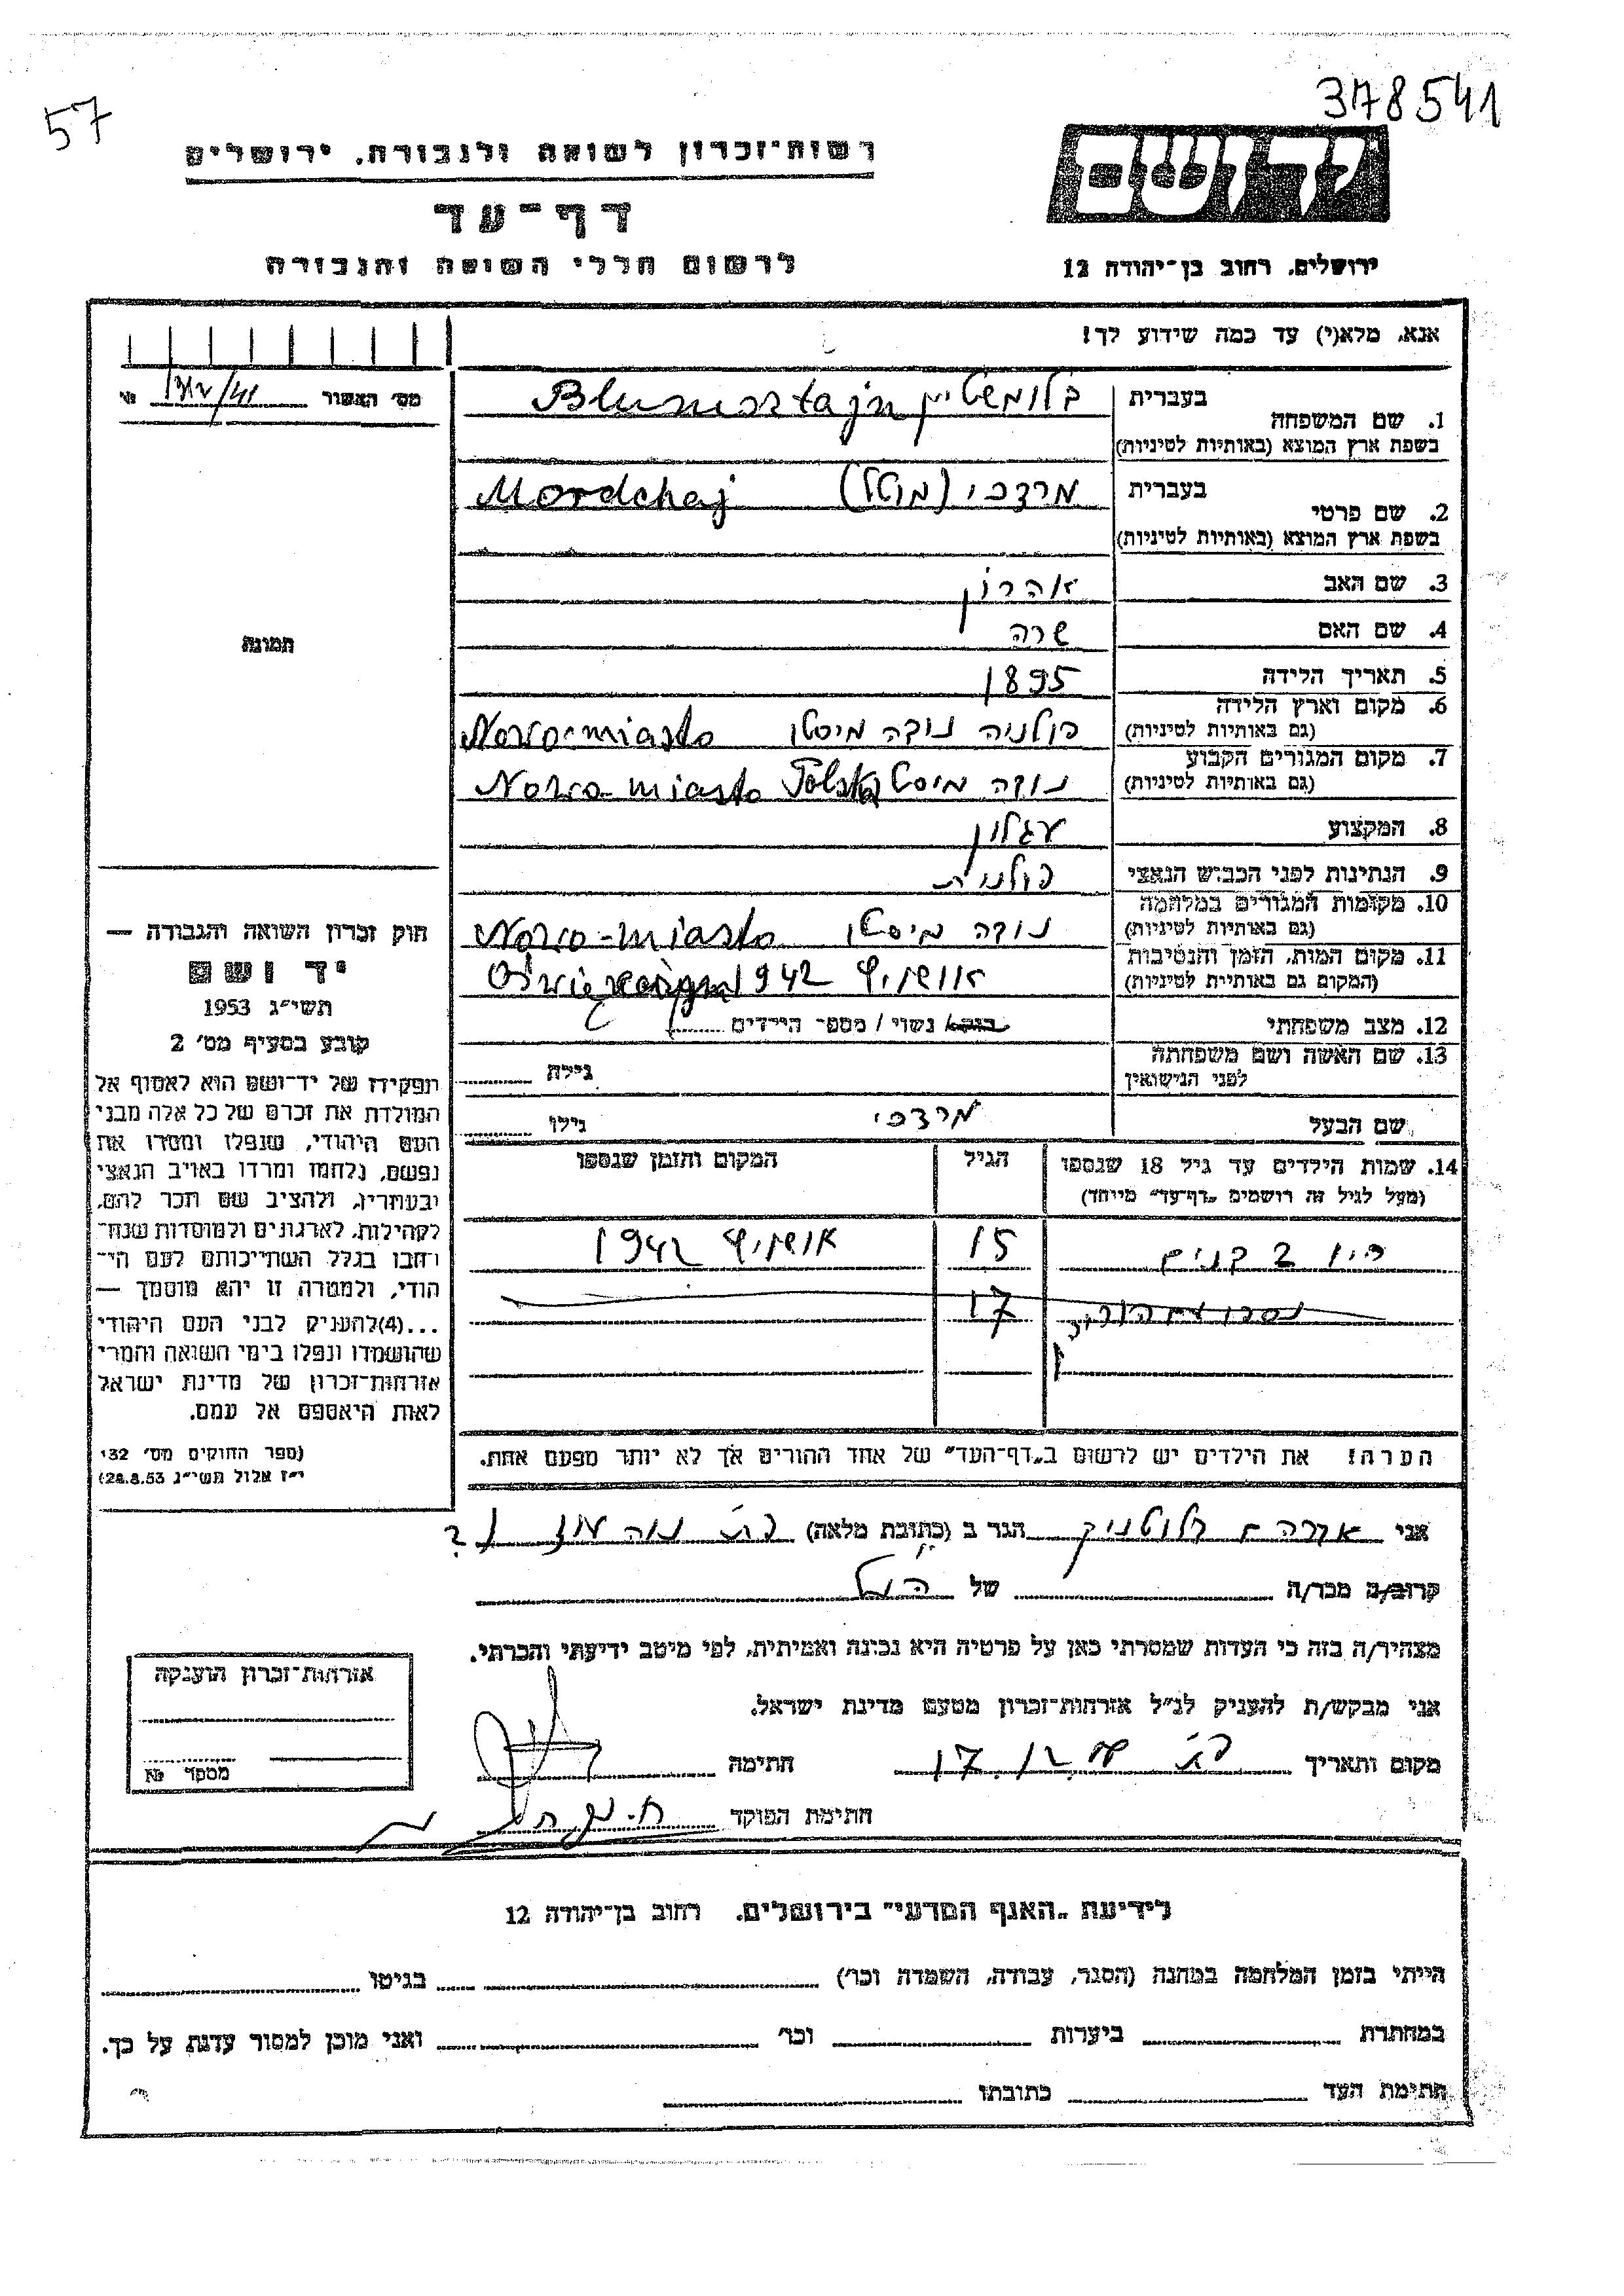 378541
57
רשות-זכרון לשואה ולגבורה, ירושלים
דף-עד
לרשום חללי השואה והגבורה
ירושלים, רחוב בן-יהודה 12
אנא, מלא(י) עד כמה שידוע לך!
מס' האשור №
1. שם המשפחה בעברית בלומשטיין Blumsztajn
בשפת ארץ המוצא (באותיות לטיניות)
2. שם פרטי בעברית מרדכי (מוטל) Mordchaj
בשפת ארץ המוצא (באותיות לטיניות)
3. שם האב אהרון
4. שם האם שרה
5. תאריך הלידה 1895
6. מקום וארץ הלידה פולניה נובה מיסטו Nowo-miasto
(גם באותיות לטיניות)
7. מקום המגורים הקבוע נובה מיסטו Nowo-miasto Polska
(גם באותיות לטיניות)
8. המקצוע עגלון
9. הנתינות לפני הכבוש הנאצי פולנית
10. מקומות המגורים במלחמה נובה מיסטו Nowo-miasto
(גם באותיות לטיניות)
11. מקום המות, הזמן והנסיבות אושויץ 1942
(המקום גם באותיות לטיניות)
12. מצב משפחתי רווק/ נשוי / מספר הילדים
13. שם האשה ושם משפחתה גילה
לפני הנישואין
שם הבעל מרדכי גילו
14. שמות הילדים עד גיל 18 שנספו הגיל המקום והזמן שנספו
(מעל לגיל זה רושמים „דף-עד" מיוחד)
היו 2 בנים 15 אושויץ 1942
17
הערה: את הילדים יש לרשום ב„דף-העד" של אחד ההורים אך לא יותר מפעם אחת.
תמונה
חוק זכרון השואה והגבורה —
יד ושם
תשי"ג 1953
קובע בסעיף מס' 2
תפקידו של יד-ושם הוא לאסוף אל
המולדת את זכרם של כל אלה מבני
העם היהודי, שנפלו ומסרו את
נפשם, נלחמו ומרדו באויב הנאצי
ובעוזריו, ולהציב שם וזכר להם,
לקהילות, לארגונים ולמוסדות שנח-
רבו בגלל השתייכותם לעם הי-
הודי, ולמטרה זו יהא מוסמך —
...(4)להעניק לבני העם היהודי
שהושמדו ונפלו בימי השואה והמרי
אזרחות-זכרון של מדינת ישראל
לאות היאספם אל עמם.
(ספר החוקים מס' 132
י"ז אלול תשי"ג 28.8.53)
אני אברהם הגר ב (כתובת מלאה)
קרוב/ה מכר/ה של הנ"ל
מצהיר/ה בזה כי העדות שמסרתי כאן על פרטיה היא נכונה ואמיתית, לפי מיטב ידיעתי והכרתי.
אני מבקש/ת להעניק לנ"ל אזרחות-זכרון מטעם מדינת ישראל.
מקום ותאריך 17.12. חתימה
חתימת הפוקד
אזרחות-זכרון הוענקה
מספר №
לידיעת „האגף המדעי" בירושלים, רחוב בן-יהודה 12
הייתי בזמן המלחמה במחנה (הסגר, עבודה, השמדה וכו') בגיטו
במחתרת ביערות וכו' ואני מוכן למסור עדות על כך.
חתימת העד כתובתו